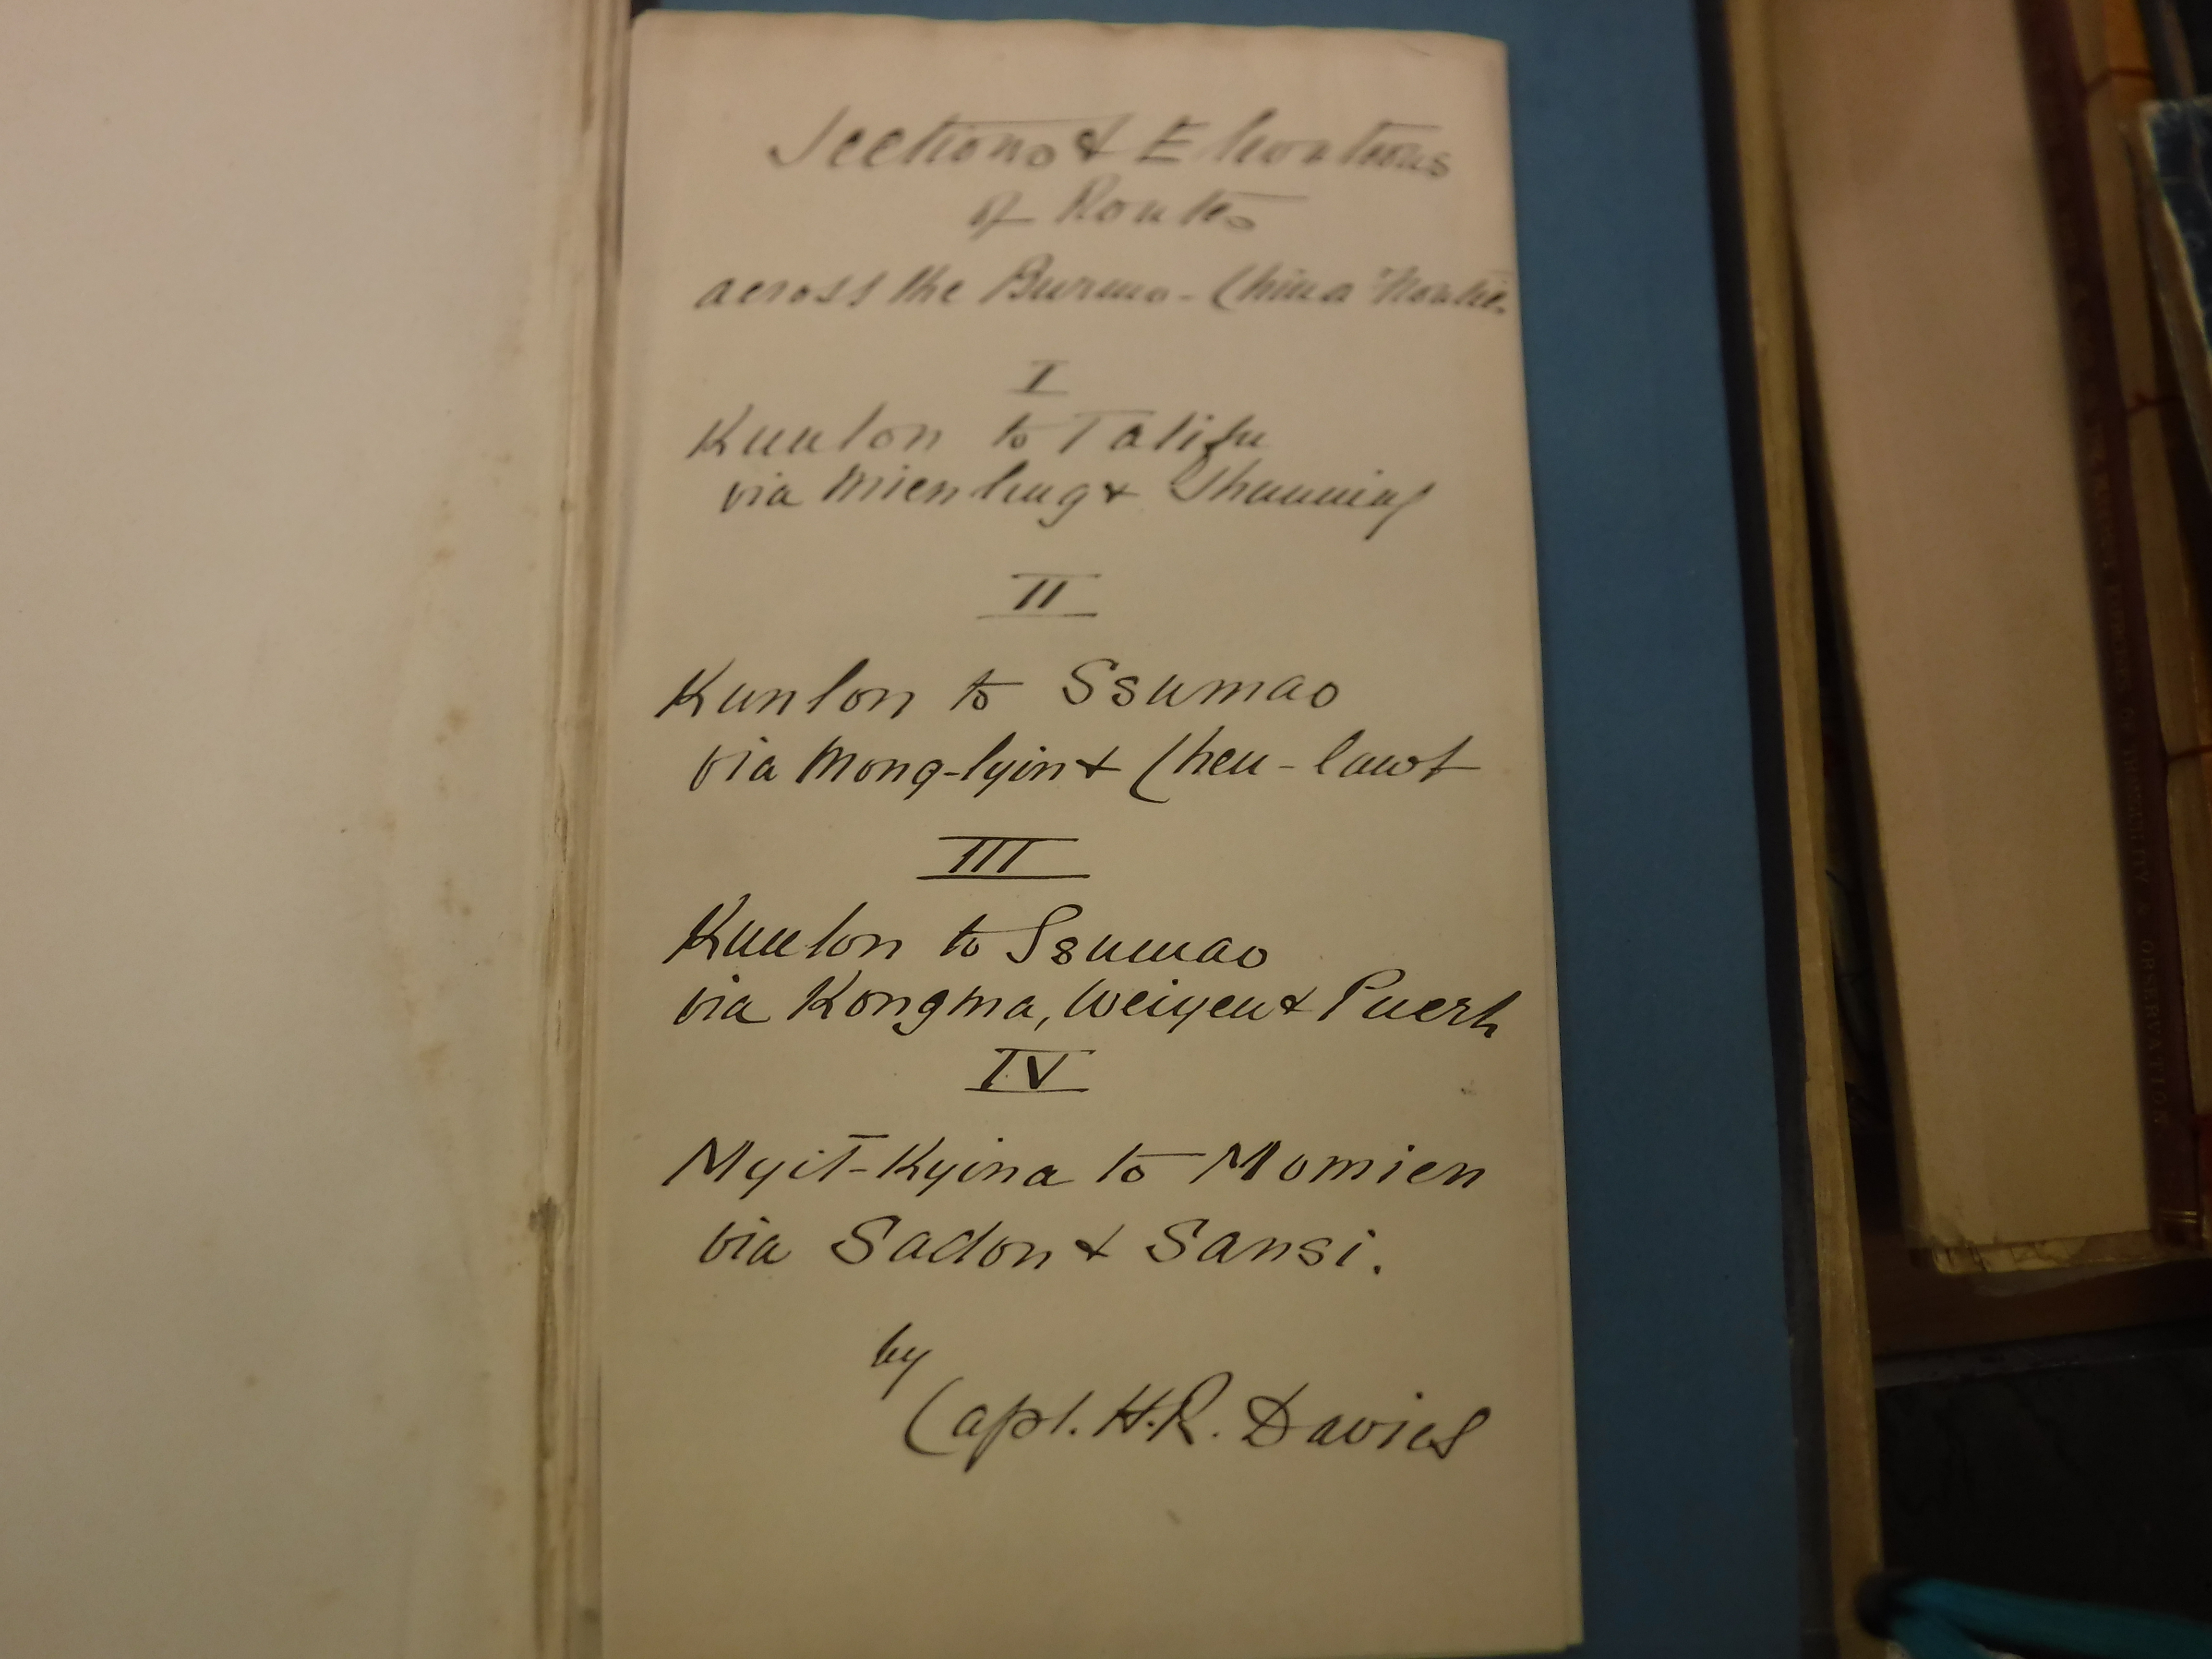 Sections & Elevations
of Routes
across the Burma-China Frontier.
I
Kunlon to Talifu
via Mienling & Shunning
II
Kunlon to Ssumao
via Mong-lyin & Chen-lawt
III
Kunlon to Ssumao
via Kongma, Weiyen & Puerh
IV
Myit-Kyina to Momien
via Sadon & Sansi.
by
Capt. H.R. Davies
OBSERVATION